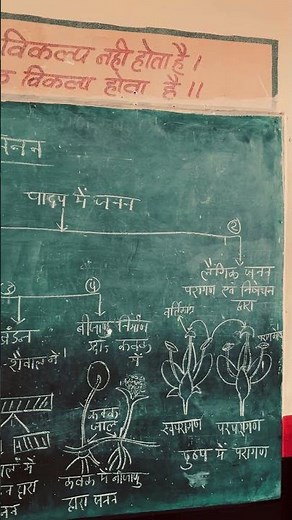 विकल्प नही होता है ।
विकल्प होता है ।।
पादप में जनन
②
लैंगिक जनन
परागण एवं निषेचन
द्वारा
③
④
बीजाणु निर्माण
कवक
में
शैवाल में
वर्तिकाग्र
कवक
जाल
स्वपरागण परपरागण
पुष्प में परागण
कवक में बीजाणु
द्वारा जनन
में
द्वारा